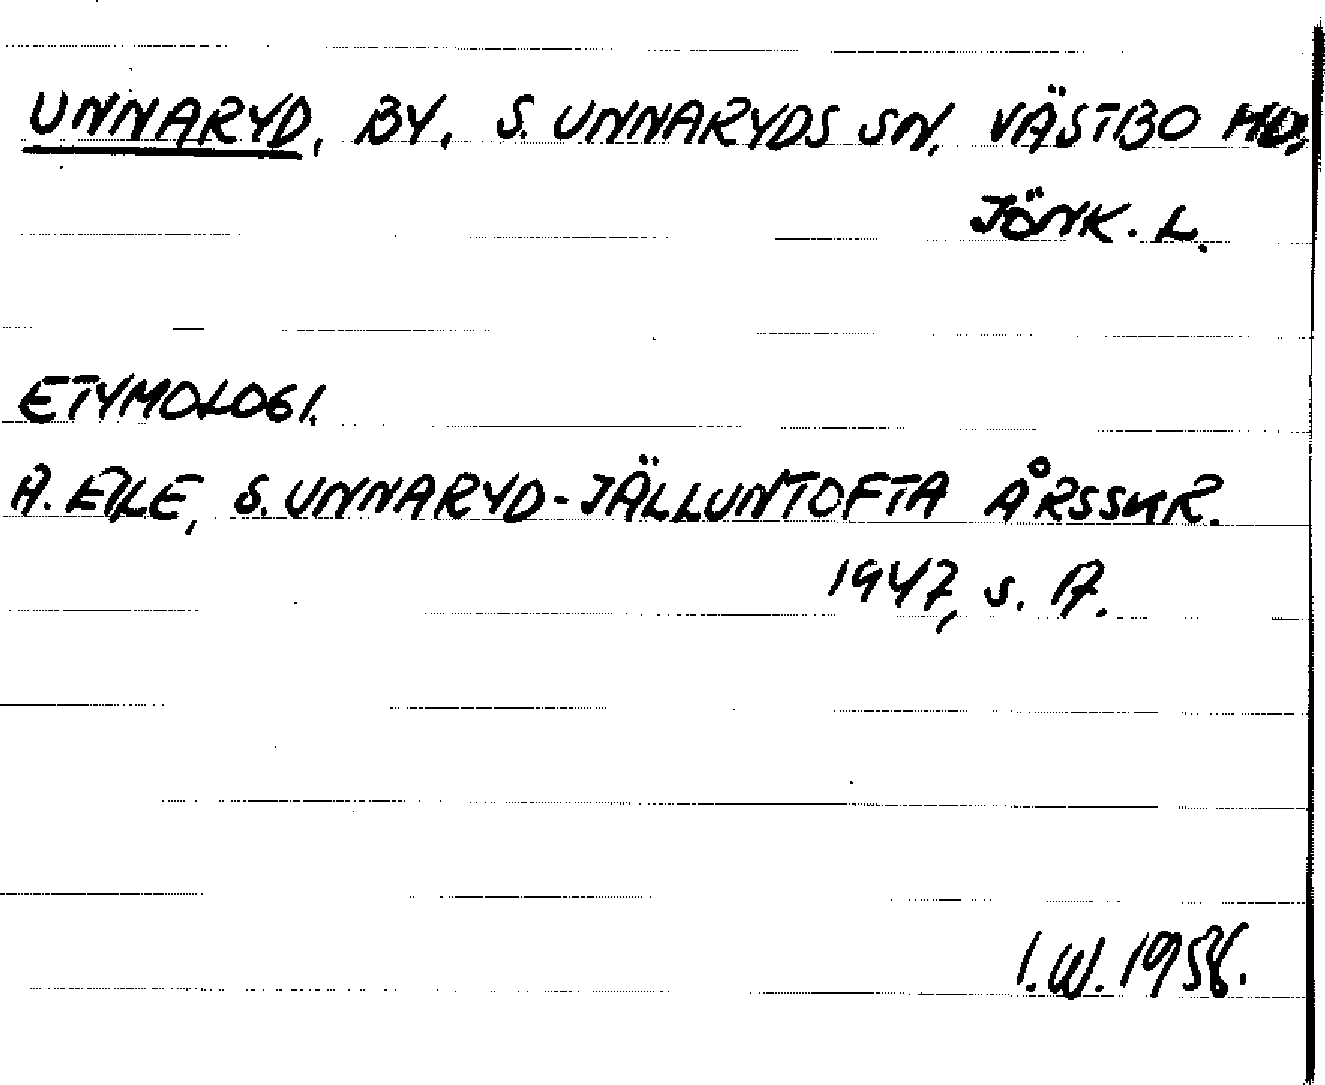 UNNARYD, BY, S. UNNARYDS SN, VÄSTBO HD,
JÖNK. L.
ETYMOLOGI.
A. EILE, S. UNNARYD-JÄLLUNTOFTA ÅRSSKR.
1947, s. 17.
I.W. 1958.